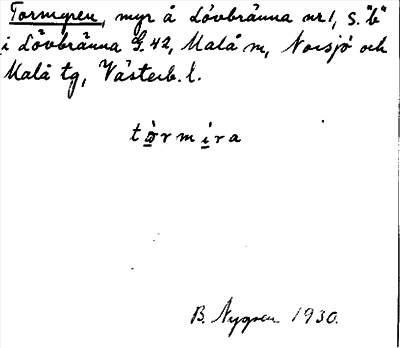 Tormyren, myr å Lövbränna nr 1, s. "b"
i Lövbränna G. 42, Malå sn, Norsjö och
Malå tg, Västerb. l.
tòrmira
B. Nygren 1930.